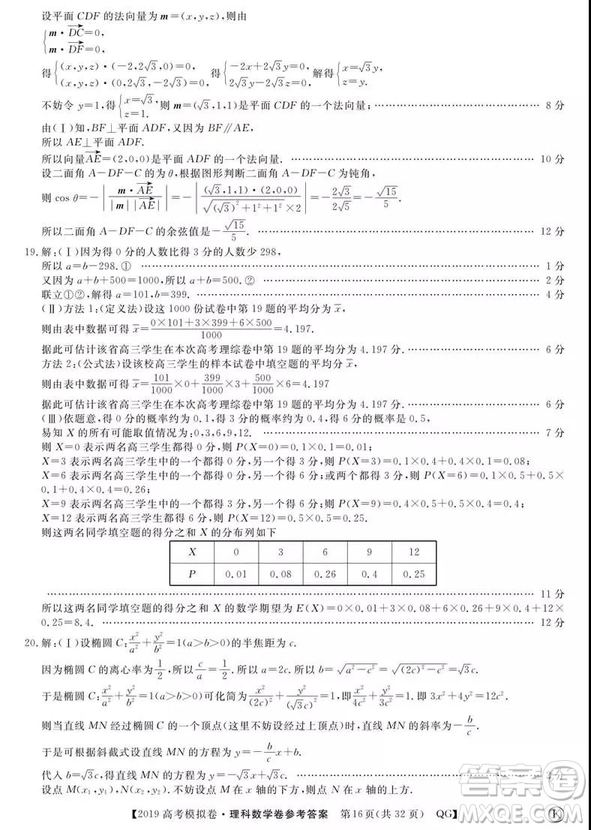 设平面 CDF 的法向量为 m=(x,y,z),则由
{m·DC=0
m·DF=0,
得{(x,y,z)·(-2,2√3,0)=0
(x,y,z)·(0,2√3,-2√3)=0,得{-2x+2√3y=0
2√3y-2√3z=0,解得{x=√3y
z=y.
不妨令 y=1,得{x=√3,
z=1.则 m=(√3,1,1)是平面 CDF 的一个法向量; 8 分
由(Ⅰ)知,BF⊥平面 ADF,又因为 BF∥AE,
所以 AE⊥平面 ADF.
所以向量AE=(2,0,0)是平面 ADF 的一个法向量. 10 分
设二面角 A-DF-C 的为θ,根据图形判断二面角 A-DF-C 为钝角,
则 cos θ=-|m·AE/|m||AE||=-|(√3,1,1)·(2,0,0)/√(√3)²+1²+1²×2|=-2√3/2√5=-√15/5.
所以二面角 A-DF-C 的余弦值是-√15/5. 12 分
19.解:(Ⅰ)因为得 0 分的人数比得 3 分的人数少 298,
所以 a=b-298.① 1 分
又因为 a+b+500=1000,所以 a+b=500.② 2 分
联立①②,解得 a=101,b=399. 4 分
(Ⅱ)方法 1:(定义法)设这 1000 份试卷中第 19 题的平均分为 x̄,
则由表中数据可得 x̄=0×101+3×399+6×500/1000=4.197.
据此可估计该省高三学生在本次高考理综卷中第 19 题的平均分为 4.197 分. 6 分
方法 2:(公式法)设该校高三学生的样本试卷中填空题的平均分为 x̄,
则由表中数据可得 x̄=101/1000×0+399/1000×3+500/1000×6=4.197.
据此可估计该省高三学生在本次高考理综卷中第 19 题的平均分为 4.197 分. 6 分
(Ⅲ)依题意,得 0 分的概率约为 0.1,得 3 分的概率约为 0.4,得 6 分的概率也是 0.5,
易知 X 的所有可能取值情况为:0,3,6,9,12. 7 分
则 X=0 表示两名高三学生中一个都得 0 分,另一个得 0 分,则 P(X=0)=0.1×0.1=0.01;
X=3 表示两名高三学生中的一个都得 0 分,另一个得 3 分,则 P(X=3)=2×0.1×0.4=0.08;
X=6 表示两名高三学生中的一个都得 0 分,另一个得 6 分;或两个都得 3 分,则 P(X=6)=2×0.1×0.5+0.4×0.4=0.26;
X=9 表示两名高三学生中的一个都得 3 分,另一个得 6 分,则 P(X=9)=2×0.4×0.5=0.4;
X=12 表示两名高三学生都得 6 分,则 P(X=12)=0.5×0.5=0.25.
则这两名同学填空题的得分之和 X 的分布列如下
X 0 3 6 9 12
P 0.01 0.08 0.26 0.4 0.25
11 分
所以这两名同学填空题的得分之和 X 的数学期望为 E(X)=0×0.01+3×0.08+6×0.26+9×0.4+12×
0.25=8.4. 12 分
20.解:(Ⅰ)设椭圆 C:x²/a²+y²/b²=1(a>b>0)的半焦距为 c.
因为椭圆 C 的离心率为1/2,所以c/a=1/2,所以 a=2c.所以 b=√a²-c²=√(2c)²-c²=√3c.
于是椭圆 C:x²/a²+y²/b²=1(a>b>0)可化简为x²/(2c)²+y²/(√3c)²=1,即x²/4c²+y²/3c²=1.
则当直线 MN 经过椭圆 C 的一个顶点(这里不妨设经过上顶点)时,直线 MN 的斜率为-b/c.
于是可根据斜截式设直线 MN 的方程为 y=-b/c x+b.
代入 b=√3c,得直线 MN 的方程为 y=-√3x+√3c.
设点 M(x₁,y₁),N(x₂,y₂),
【2019 高考模拟卷·理科数学卷参考答案 第 16 页(共 32 页) QG】
K
答案圈